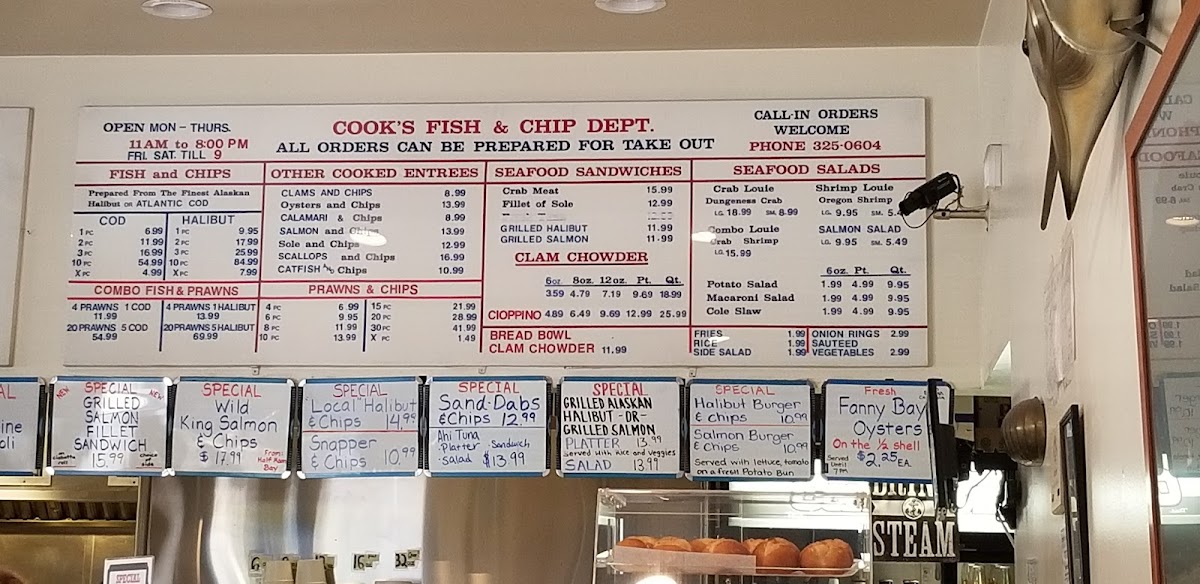 OPEN MON - THURS.
11AM to 8:00 PM
FRI. SAT. TILL 9
COOK'S FISH & CHIP DEPT.
ALL ORDERS CAN BE PREPARED FOR TAKE OUT
CALL-IN ORDERS
WELCOME
PHONE 325-0604
FISH and CHIPS
Prepared From The Finest Alaskan
Halibut or ATLANTIC COD
COD
1 PC 6.99
2 PC 11.99
3 PC 16.99
10 PC 54.99
X PC 4.99
HALIBUT
1 PC 9.95
2 PC 17.99
3 PC 25.99
10 PC 84.99
X PC 7.99
COMBO FISH & PRAWNS
4 PRAWNS 1 COD
11.99
20 PRAWNS 5 COD
54.99
4 PRAWNS 1 HALIBUT
13.99
20 PRAWNS 5 HALIBUT
69.99
OTHER COOKED ENTREES
CLAMS AND CHIPS 8.99
Oysters and Chips 13.99
CALAMARI & Chips 8.99
SALMON and Chips 13.99
Sole and Chips 12.99
SCALLOPS and Chips 16.99
CATFISH AND Chips 10.99
PRAWNS & CHIPS
4 PC 6.99
6 PC 9.95
8 PC 11.99
10 PC 13.99
15 PC 21.99
20 PC 28.99
30 PC 41.99
X PC 1.49
SEAFOOD SANDWICHES
Crab Meat 15.99
Fillet of Sole 12.99
GRILLED HALIBUT 11.99
GRILLED SALMON 11.99
CLAM CHOWDER
6oz. 8oz. 12oz. Pt. Qt.
3.59 4.79 7.19 9.69 18.99
CIOPPINO 4.89 6.49 9.69 12.99 25.99
BREAD BOWL
CLAM CHOWDER 11.99
SEAFOOD SALADS
Crab Louie
Dungeness Crab
LG. 18.99 SM. 8.99
Combo Louie
Crab Shrimp
LG. 15.99
Shrimp Louie
Oregon Shrimp
LG. 9.95 SM.
SALMON SALAD
LG. 9.95 SM. 5.49
6oz. Pt. Qt.
Potato Salad 1.99 4.99 9.95
Macaroni Salad 1.99 4.99 9.95
Cole Slaw 1.99 4.99 9.95
FRIES 1.99
RICE 1.99
SIDE SALAD 1.99
ONION RINGS 2.99
SAUTEED
VEGETABLES 2.99
NEW SPECIAL NEW
GRILLED
SALMON
FILLET
SANDWICH
15.99
SPECIAL
Wild
King Salmon
& Chips
$ 17.99
From
Half Moon
Bay
SPECIAL
Local Halibut
& Chips 14.99
Snapper
& Chips 10.99
SPECIAL
Sand-Dabs
& Chips 12.99
Ahi Tuna
.Platter .Sandwich
.Salad $13.99
SPECIAL
GRILLED ALASKAN
HALIBUT - OR -
GRILLED SALMON
PLATTER 13.99
Served with Rice and Veggies
SALAD 13.99
SPECIAL
Halibut Burger
& Chips 10.99
Salmon Burger
& Chips 10.99
Served with lettuce, tomato
on a fresh Potato Bun
Fresh
Fanny Bay
Oysters
On the 1/2 shell
Served
Until
7PM
$2.25 EA.
STEAM
16
32
SPECIAL